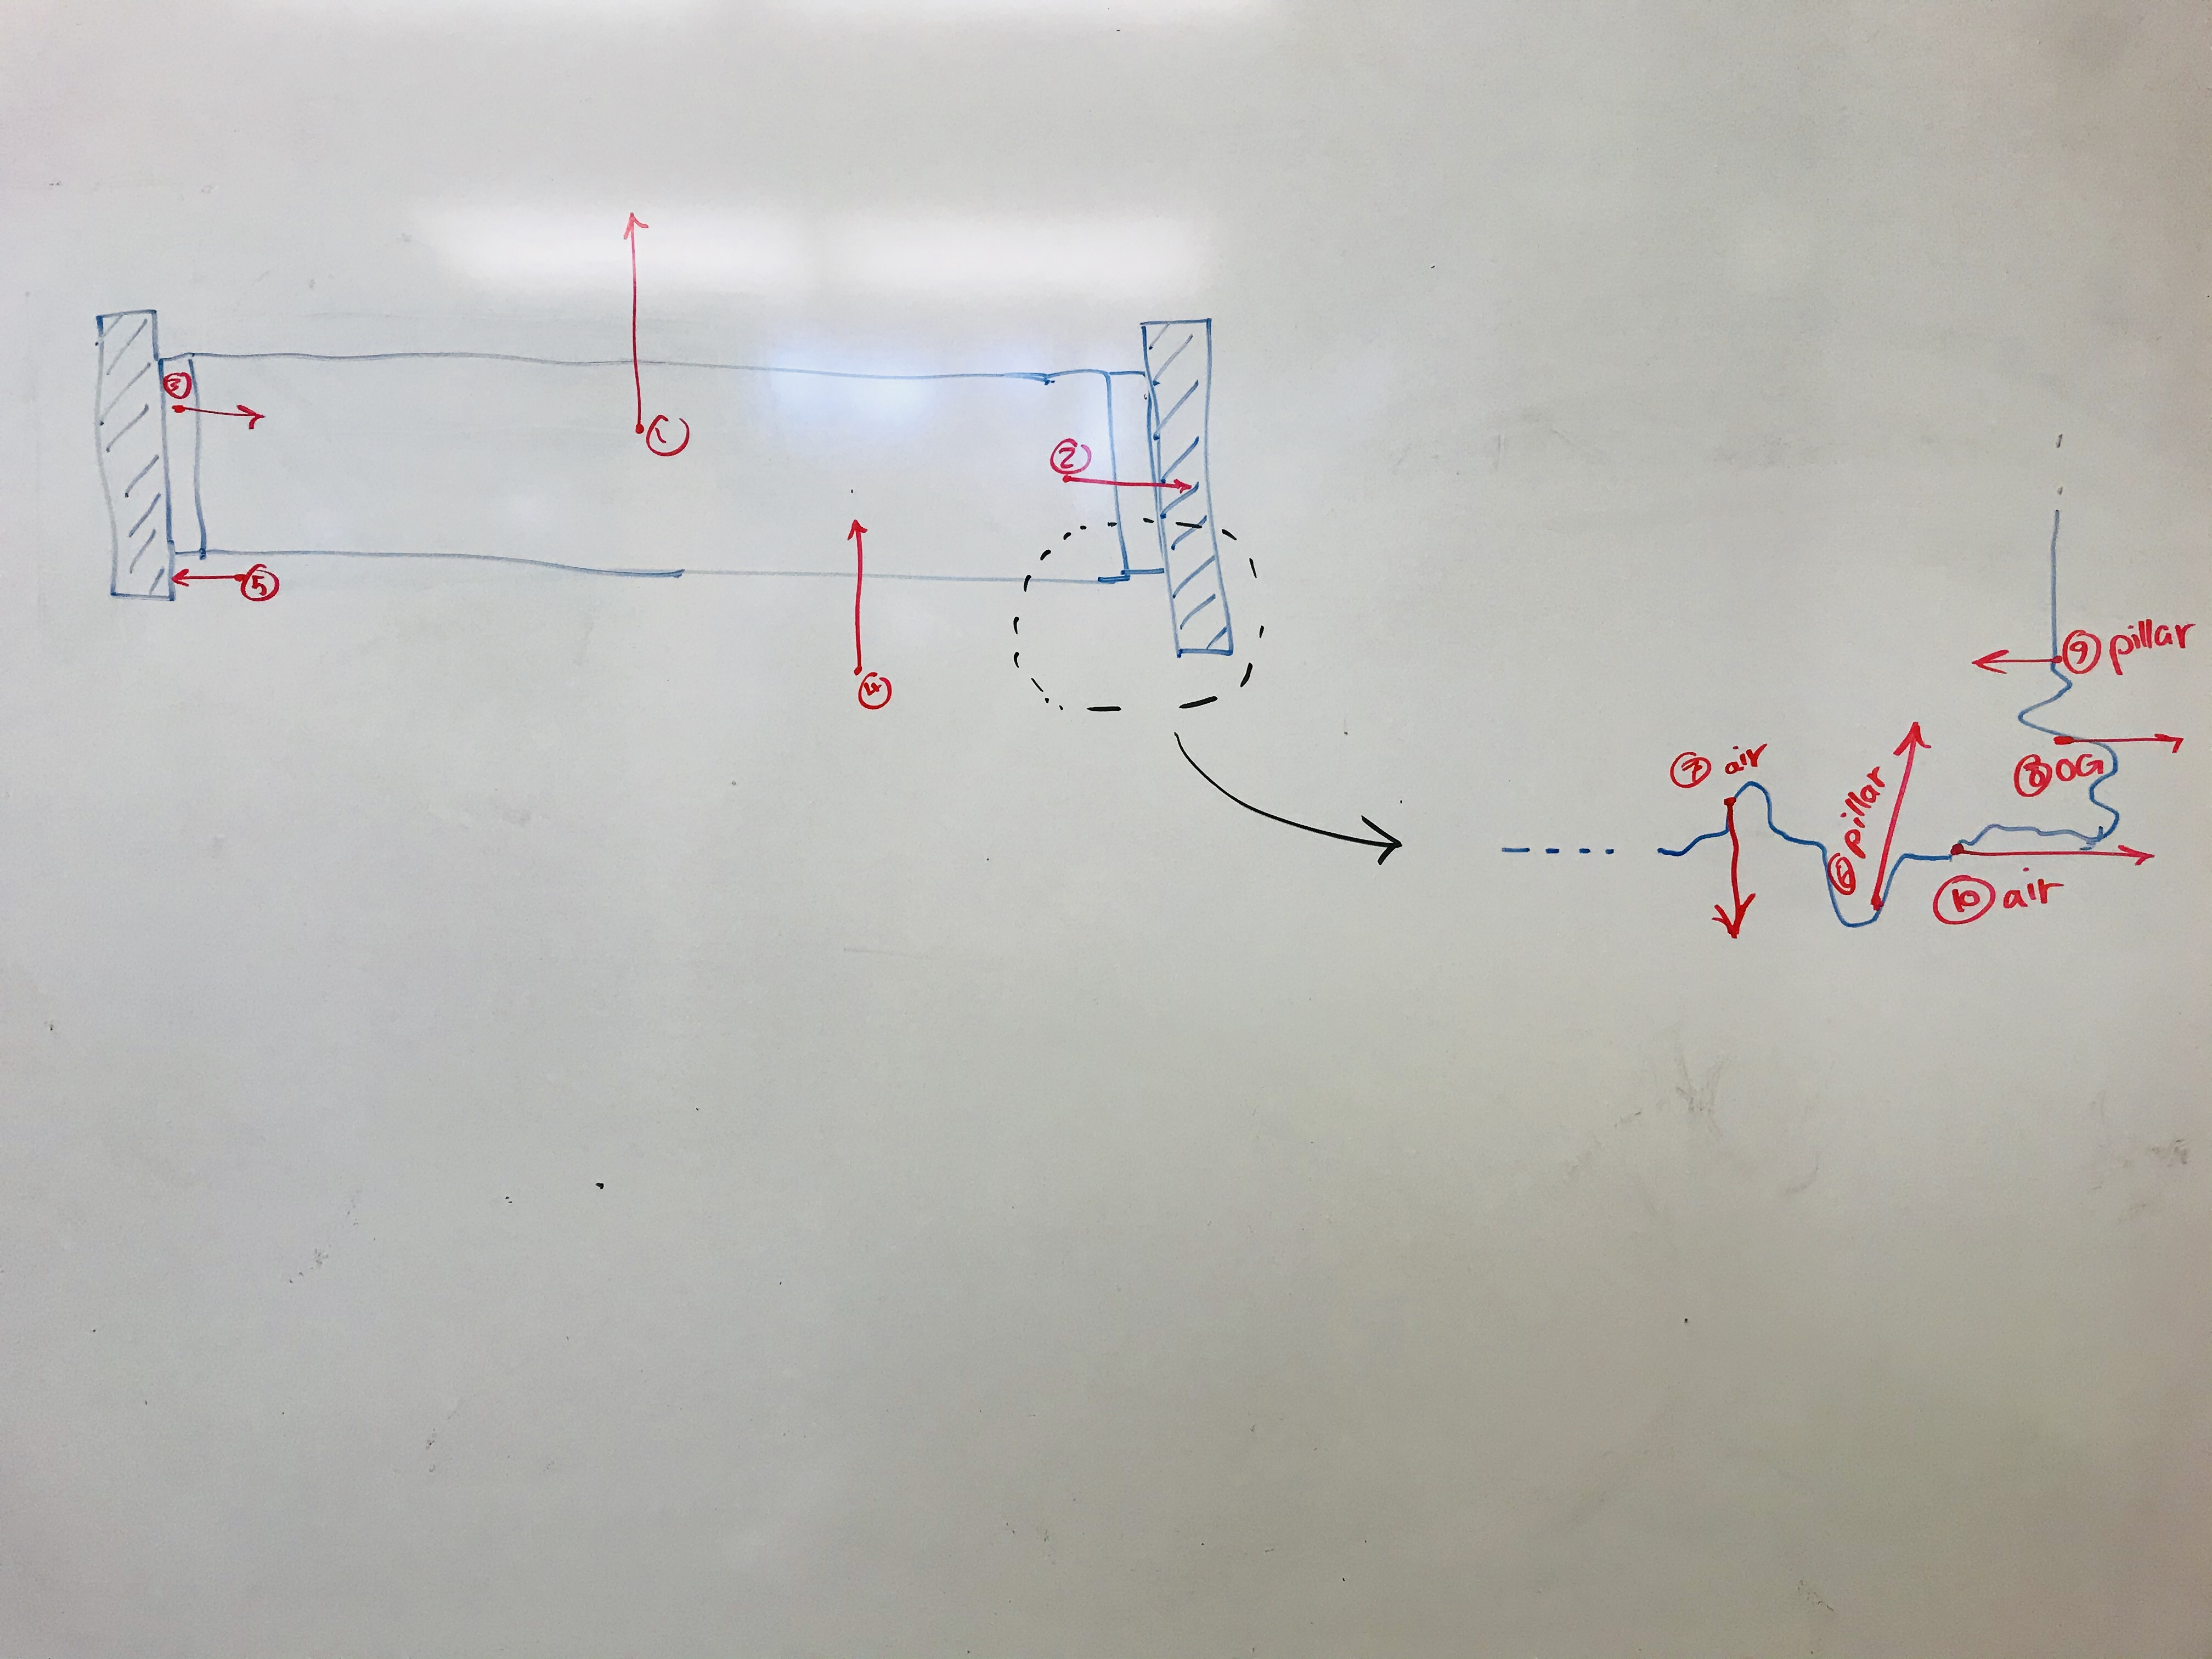 3
1
2
5
4
9 pillar
7 air
8 OG
6 pillar
10 air